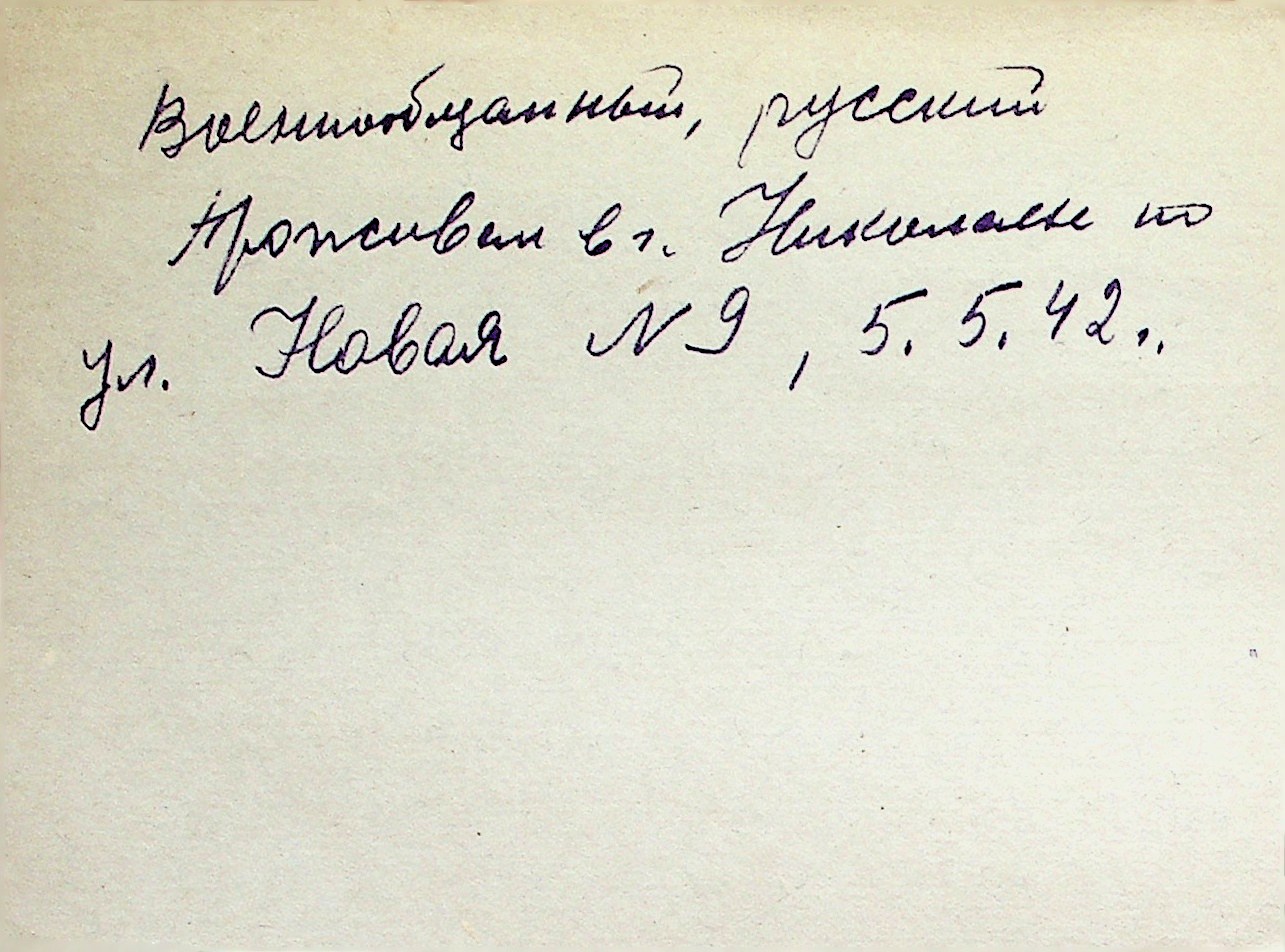 Военнообязанный, русский
Проживал в г. Николаеве по
ул. Новая № 9, 5.5.42 г.